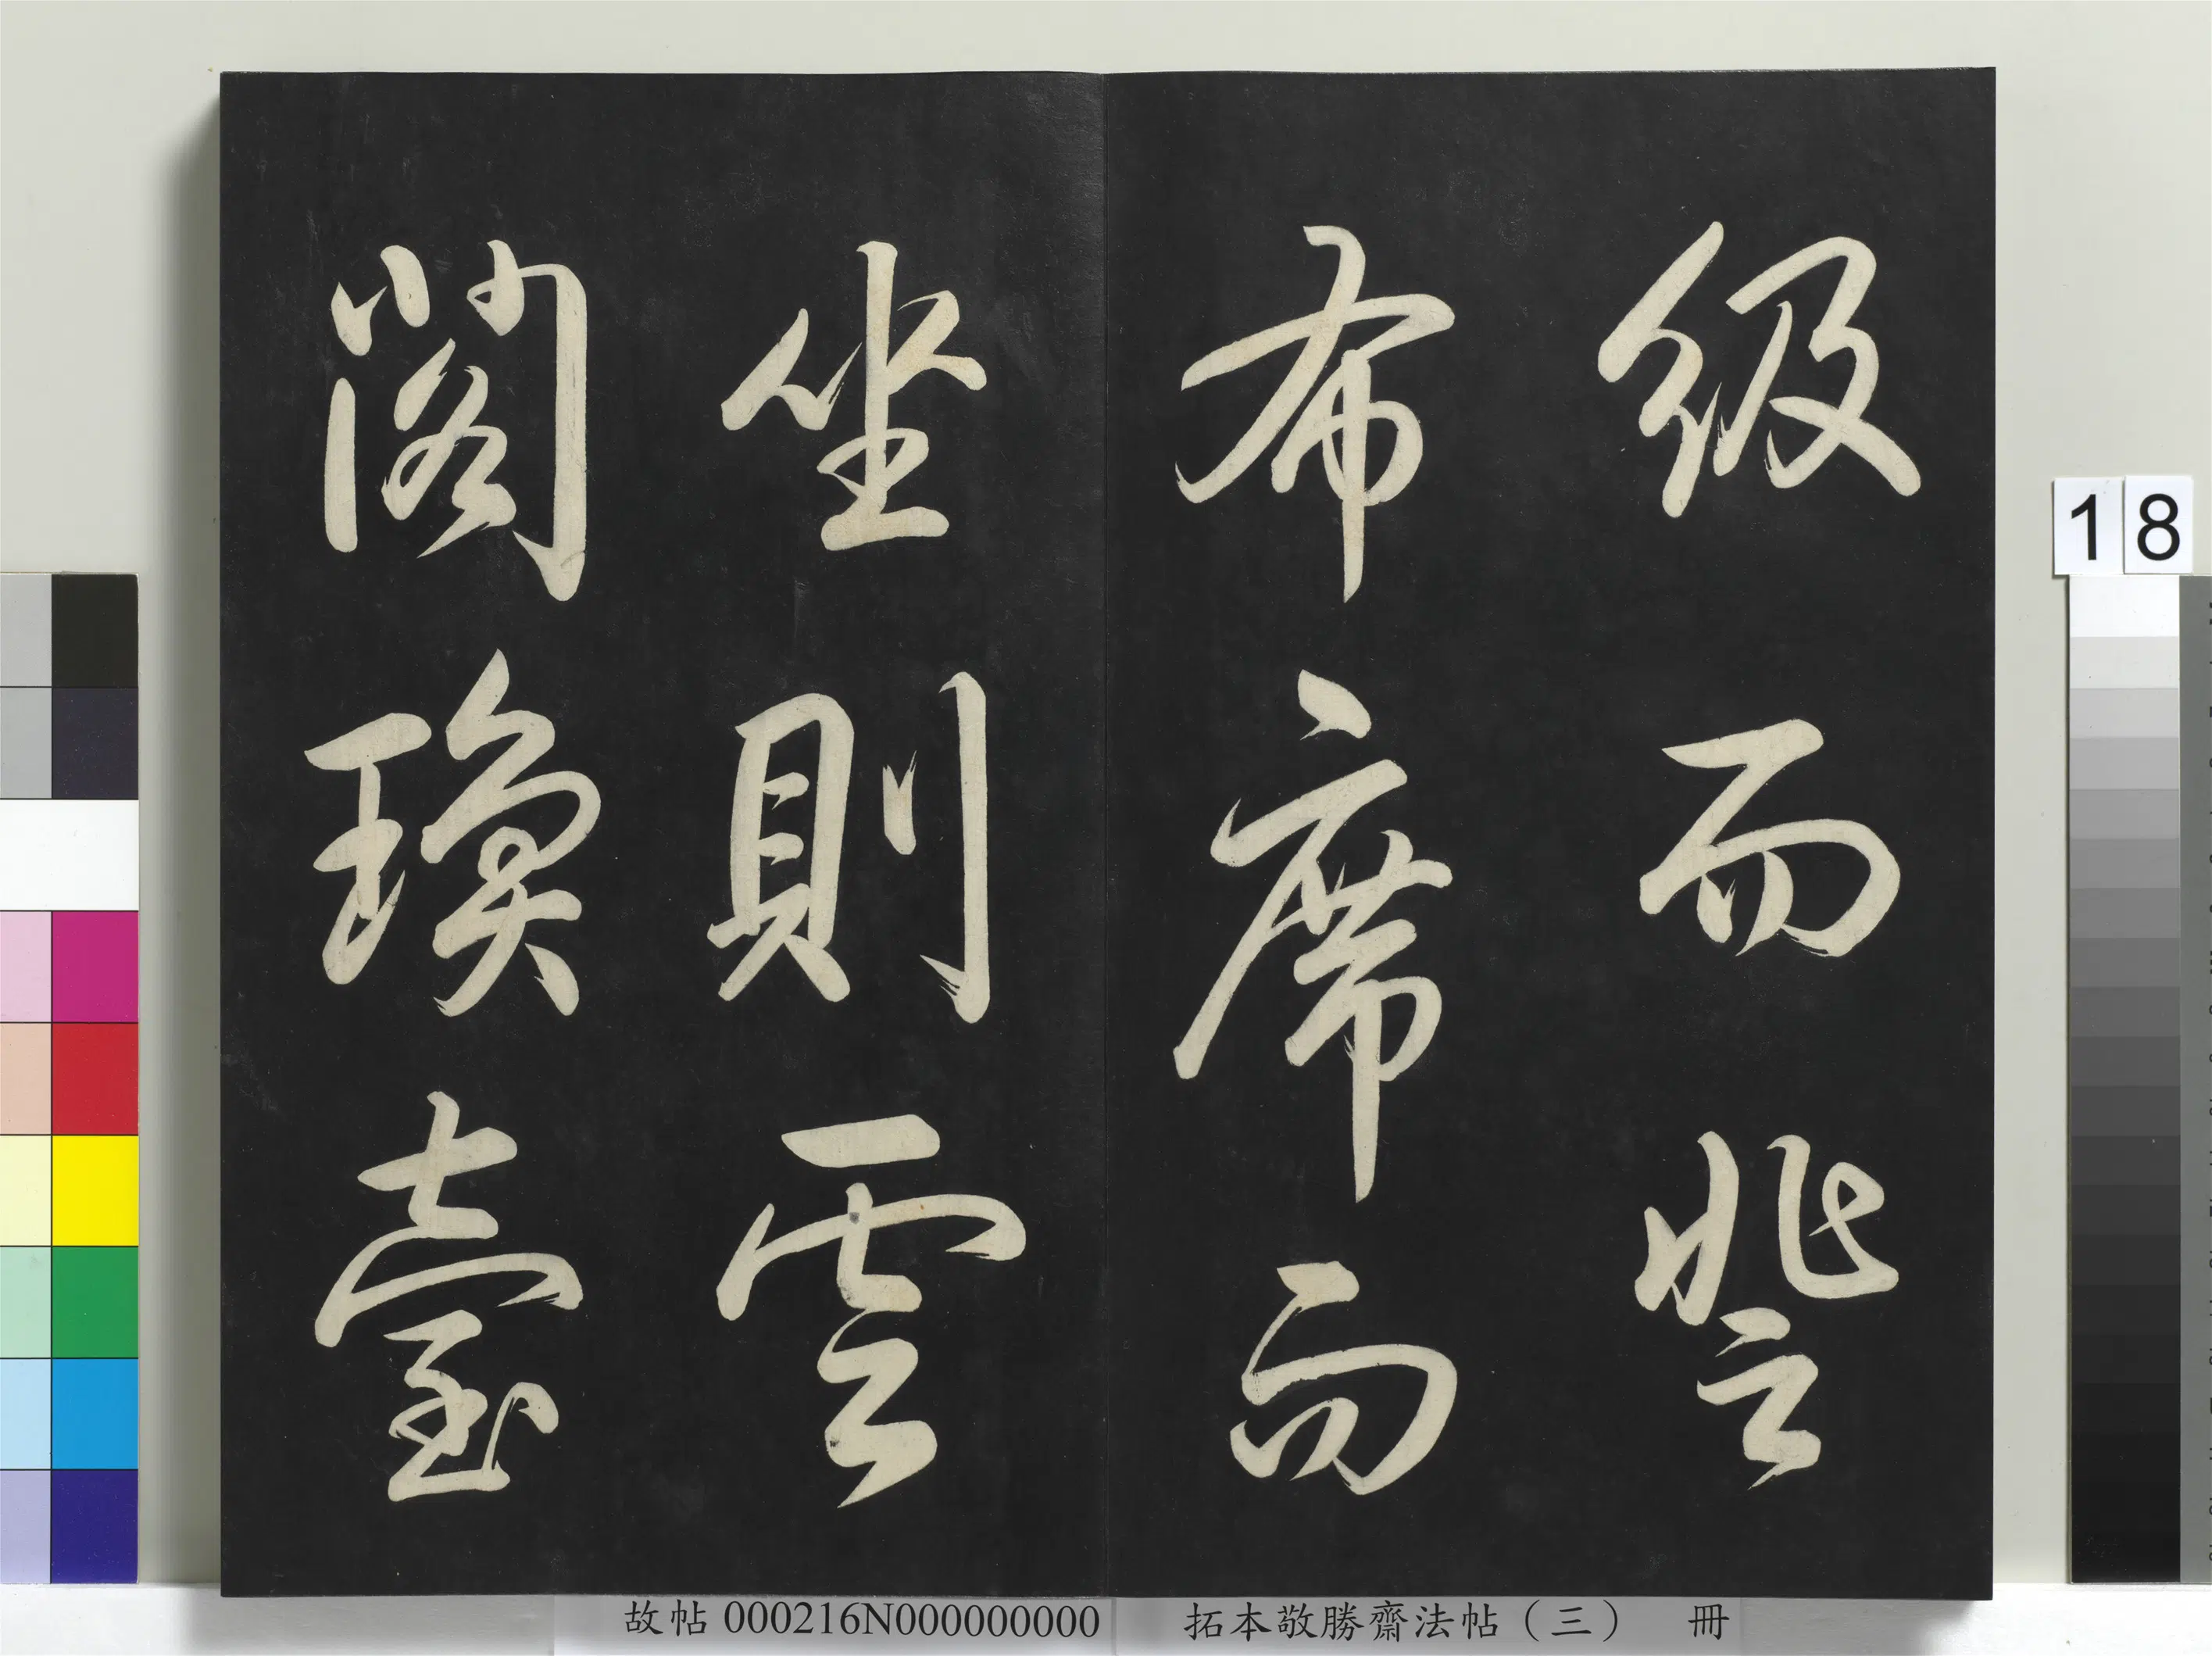 級而登
布席而
坐則雲
閣瓊臺
18
故帖 000216N000000000 拓本敬勝齋法帖（三） 冊